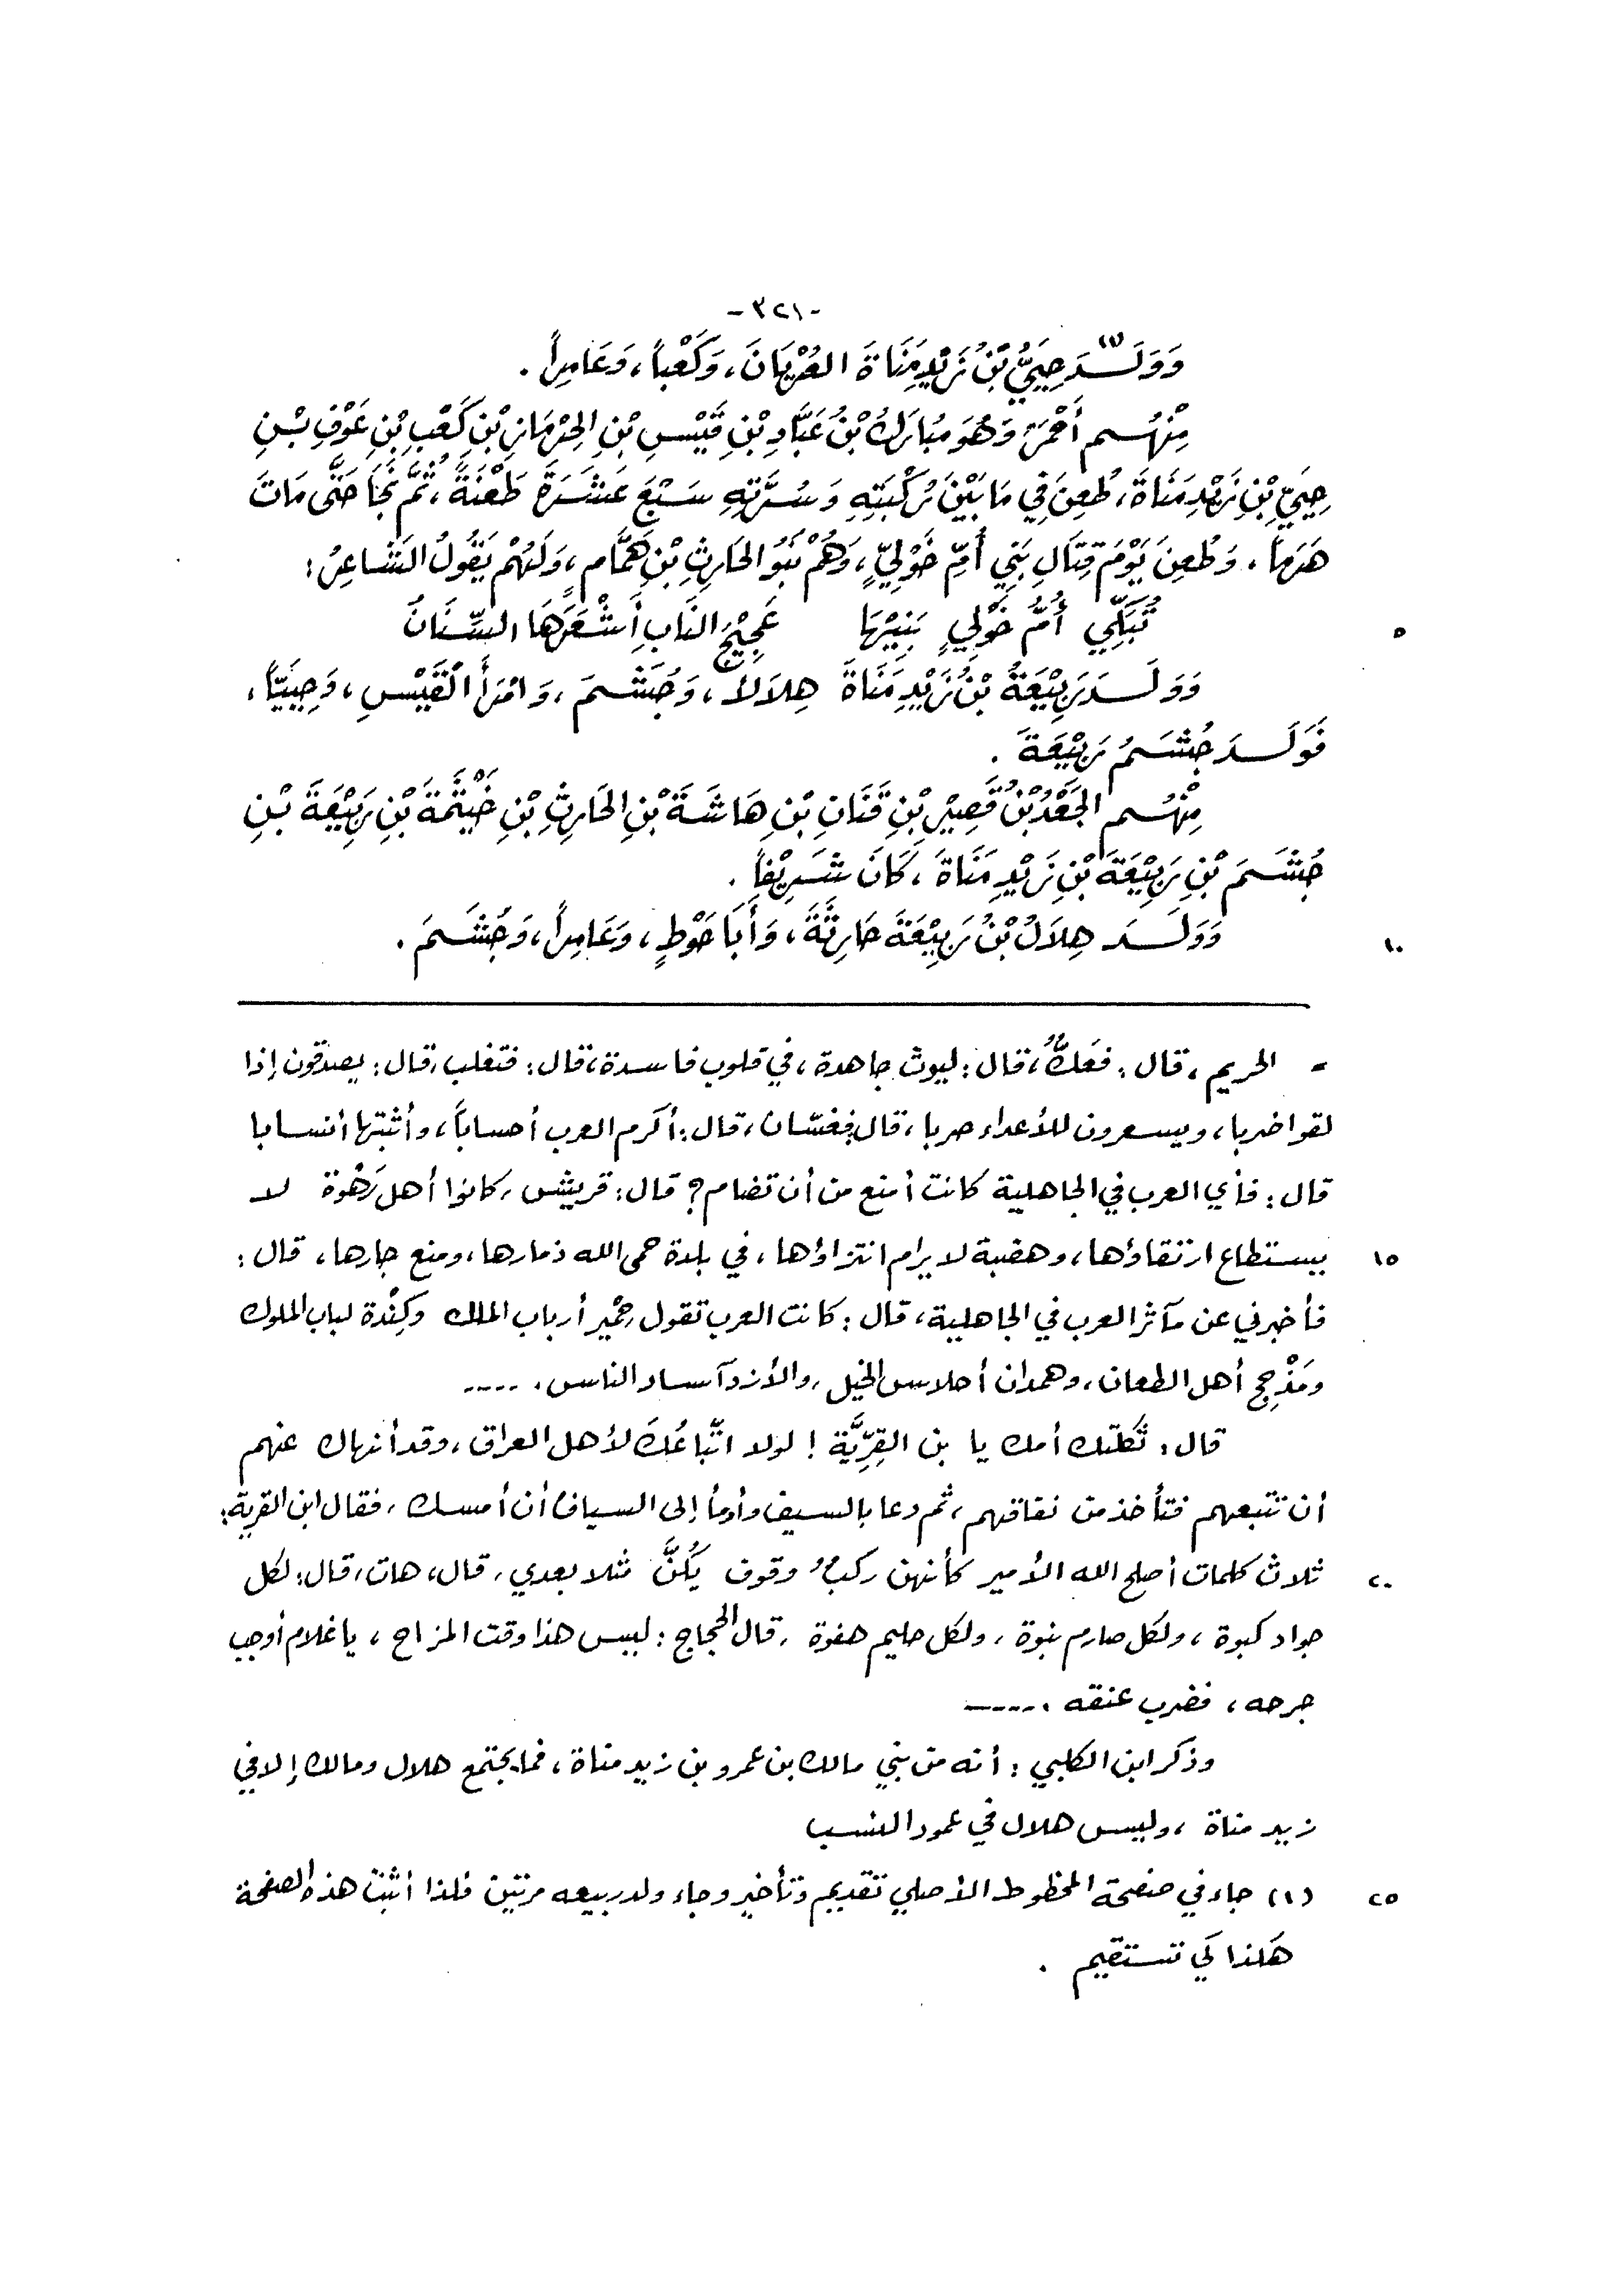 -٣٢١-
وَوَلَـدَ(١) حِيَيُّ بْنُ زَيْدِ مَنَاةَ العُرْيَانَ، وَكَعْباً، وَعَامِراً.
مِنْهُـم أَحْمَرُ وَهُوَ مُبَارَكُ بْنُ عَبَّادِ بْنِ قَيْسِ بْنِ الحِرْمَازِ بْنِ كَعْبِ بْنِ عَوْفِ بْـنِ
حِيَيِّ بْنِ زَيْدِ مَنَاةَ، طُعِنَ فِي مَا بَيْنَ رُكْبَتِهِ وَسُرَّتِهِ سَبْعَ عَشَرَةَ طَعْنَةً، ثُمَّ نَجَا حَتَّى مَاتَ
هَرَماً. وَطُعِنَ يَوْمَ قِتَالِ بَنِي أُمِّ خَوْلِيٍّ، وَهُمْ بَنُو الحَارِثِ بْنِ هَمَّامٍ، وَلَهُم يَقُولُ الشَّاعِرُ:
تُبَكِّي أُمُّ خَوْلِيٍ بَنِيْهَا عَجِيْجَ النَّابِ أَشْعَرَهَا السِّنَانُ
٥
وَوَلَـدَ رَبِيْعَةُ بْنُ زَيْدِ مَنَاةَ هِلَالاً، وَجُشَمَ، وَامْرَأَ القَيْسِ، وَحِيَيّاً،
فَوَلَـدَ جُشَمُ رَبِيْعَةَ.
مِنْهُـم الجَعْدُ بْنُ قَصِيْرِ بْنِ قَنَانِ بْنِ هَاشَةَ بْنِ الحَارِثِ بْنِ خَيْثَمَةَ بْنِ رَبِيْعَةَ بْـنِ
جُشَمَ بْنِ رَبِيْعَةَ بْنِ زَيْدِ مَنَاةَ، كَانَ شَرِيْفاً.
وَوَلَـدَ هِلَالُ بْنُ رَبِيْعَةَ حَارِثَةَ، وَأَبَا حَوْطٍ، وَعَامِراً، وَجُشَمَ.
١٠
= الحريم، قال: فعَكٌّ، قال: ليوث جاهدة، في قلوب فاسدة، قال: فتغلب، قال: يصدقون إذا
لقوا ضربا، ويسعرون للأعداء حربا، قال: فغسّان، قال: أكرم العرب أحساباً، وأثبتها أنسابا
قال: فأي العرب في الجاهلية كانت أمنع من أن تضام؟ قال: قريش، كانوا أهل رَهْوة لا
يستطاع ارتقاؤها، وهضبة لا يرام انتزاؤها، في بلدة حمى الله ذمارها، ومنع جارها، قال:
١٥
فأخبرني عن مآثر العرب في الجاهلية، قال: كانت العرب تقول حِمْير أرباب الملك وكِنْدة لباب الملوك
ومَذْحِج أهل الطعان، وهمدان أحلاس الخيل، والأزد آساد الناس. .....
قال: ثكلتك أمك يا بن القِرِّيَّة! لولا اتّباعُكَ لأهل العراق، وقد أنهاك عنهم
أن تتبعهم فتأخذ من نفاقهم، ثم دعا بالسيف وأومأ إلى السياف أن أمسك، فقال ابن القرية:
ثلاث كلمات أصلح الله الأمير كأنهن ركبٌ وقوف يكُنَّ مثلا بعدي، قال، هات، قال: لكل
٢٠
جواد كبوة، ولكل صارم نبوة، ولكل حليم هفوة، قال الحجاج: ليس هذا وقت المزاح، يا غلام أوجب
جرحه، فضرب عنقه. .....
وذكر ابن الكلبي: أنه من بني مالك بن عمرو بن زيد مناة، فما يجتمع هلال ومالك إلا في
زيد مناة، وليس هلال في عمود النسب
(١) جاء في صفحة المخطوط الأصلي تقديم وتأخير وجاء ولد ربيعه مرتين فلذا أثبت هذه الصفحة
٢٥
هكذا كي تستقيم.